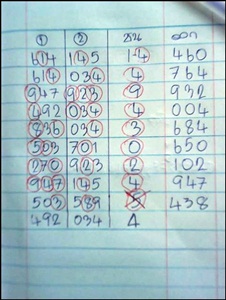 ① ② ชน ออก
614 145 1-4 460
614 034 4 764
947 923 9 932
492 034 4 004
836 034 3 684
503 701 0 650
270 923 2 102
947 145 4 947
503 589 5 438
492 034 4